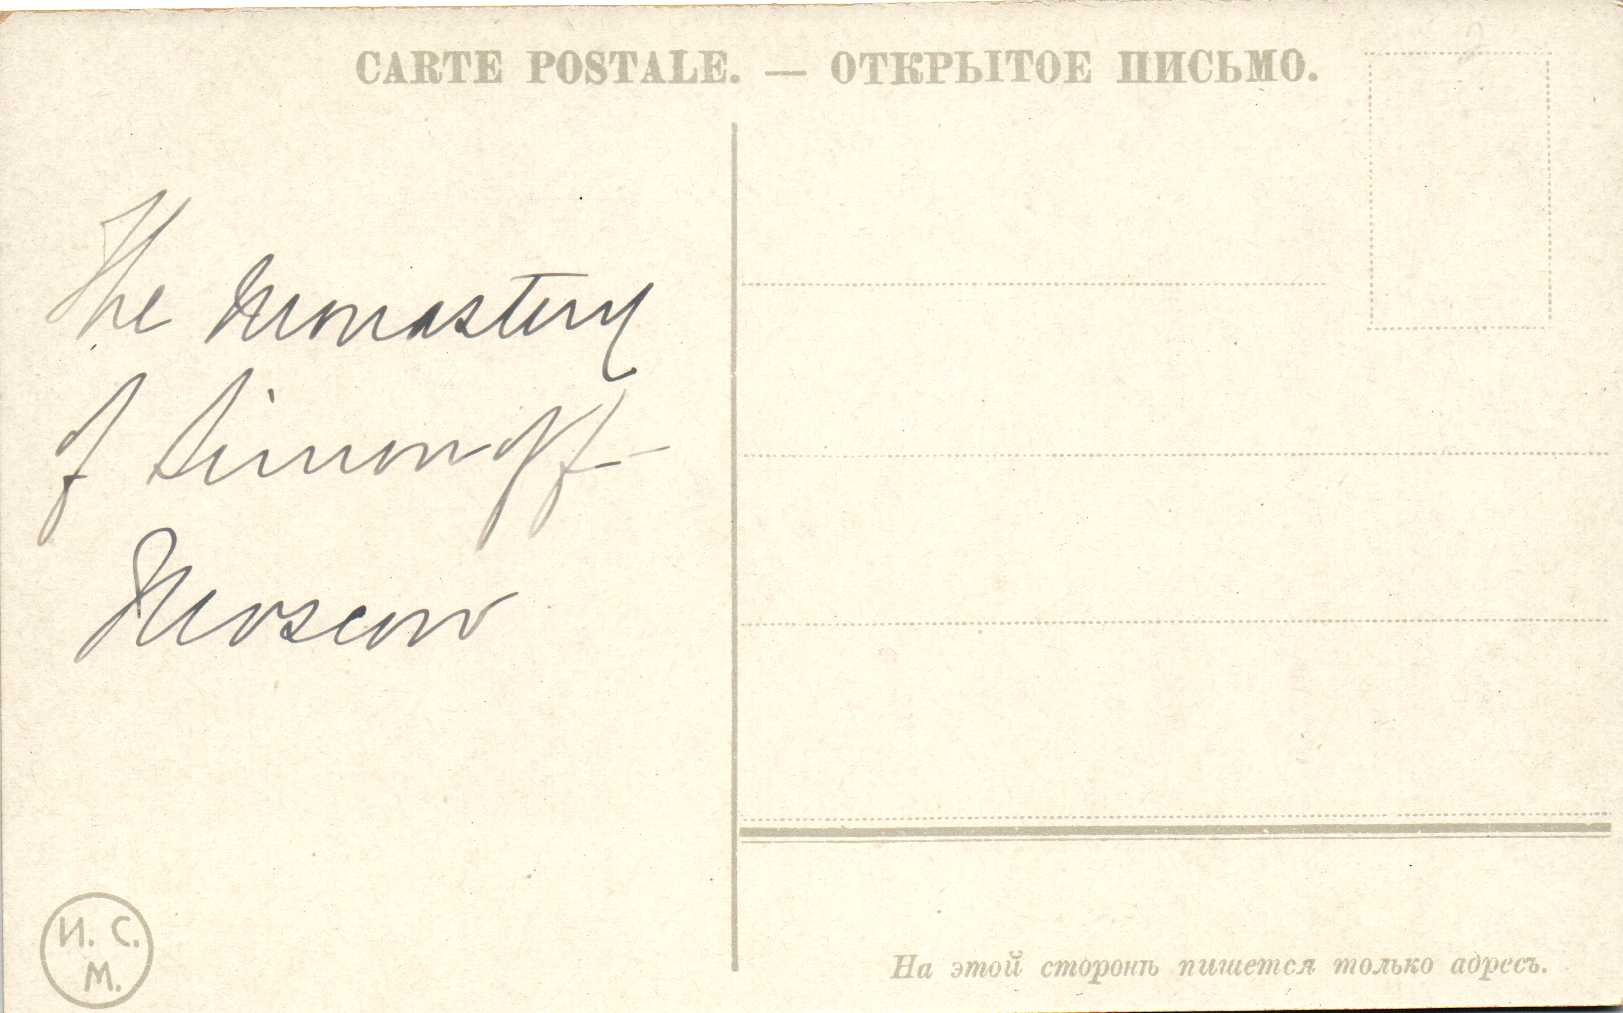 CARTE POSTALE. — ОТКРЫТОЕ ПИСЬМО.
2
The Monastery
of Simonoff
Moscow
И. С.
М.
На этой сторонѣ пишется только адресъ.